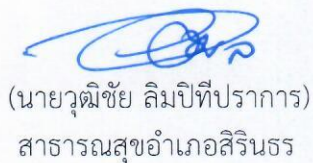 (นายวุฒิชัย ลิมปิทีปราการ)
สาธารณสุขอำเภอสิรินธร